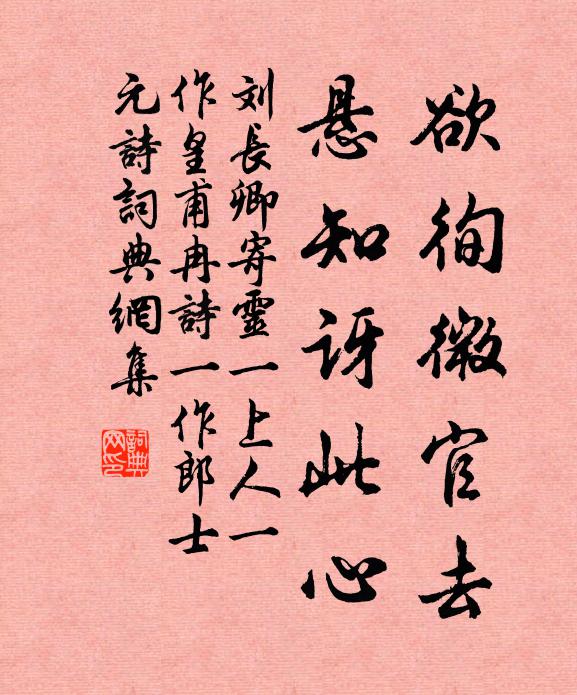 欲徇微官去
悬知讶此心
刘長卿寄靈一上人一
作皇甫冉詩一作郎士
元詩詞典網集
詞典網印